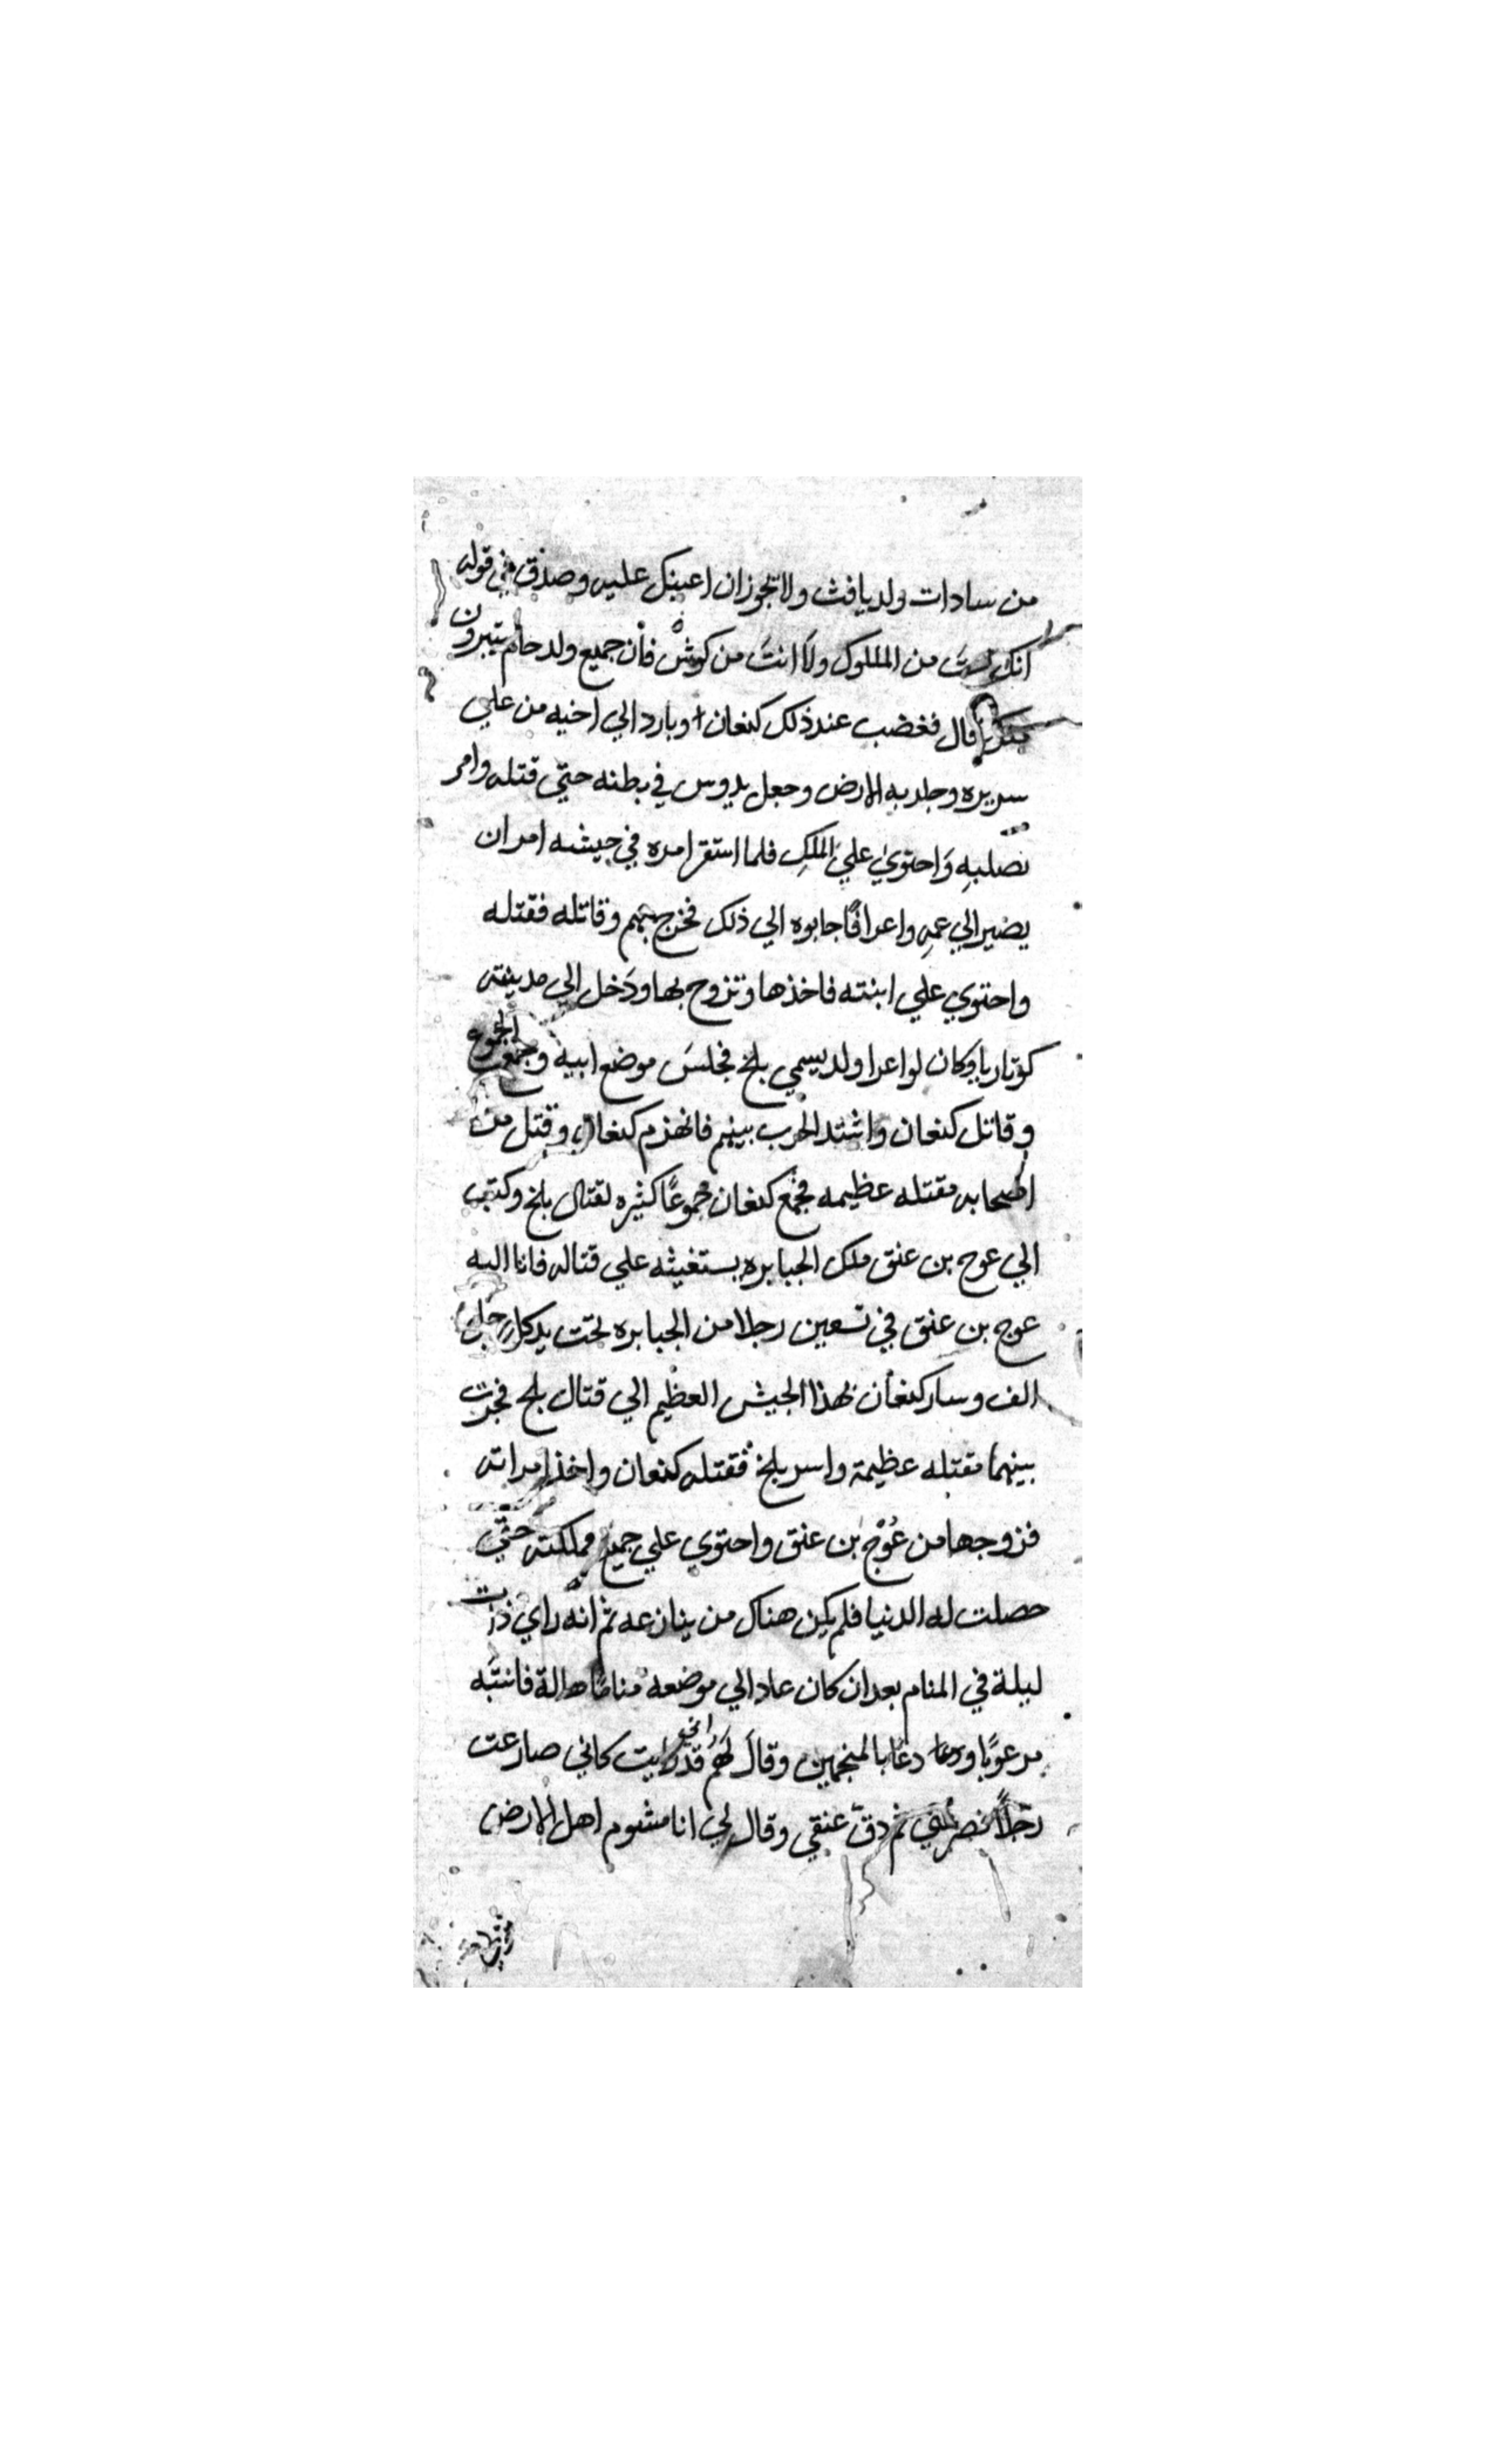 من سادات ولد يافث ولا تجوز ان اعينك عليه وصدق في قوله
انك لست من الملوك ولا انت من كوش فأن جميع ولد حام يتبرون
منك قال فغضب عند ذلك كنعان وبارد الي اخيه من علي
سريره وجلد به الارض وجعل يدوس في بطنه حتي قتله وامر
نصلبهِ وَاحتوي علي الملكِ فلما استقر امره في جيشه امر ان
يضير الي عمهِ واعرا فاجابوه الي ذلك فخرج بهم وقاتله فقتله
واحتوي علي ابنته فاخذها وتزوج بها ودَخل الى مدينته
كوتاريا وكان لواعرا ولد يسمي بلخ فجلسَ موضع ابيه وجمع الجموع
وقاتل كنعان واشتد الحرب بينهم فانهزم كنعان وقتل من
اصحابه مقتله عظيمه فجمع كنعان جموعًا كثيره لقتال بلخ وكتب
الي عوج بن عنق ملك الجبابره يستغيثه علي قتاله فاتا اليه
عوج بن عنق في تسعين رجلا من الجبابره تحت يد كل رجل
الف وسار كنعان بهذا الجيش العظيم الي قتال بلخ فجرت
بينهما مقتله عظيمة واسر بلخ فقتله كنعان واخذ امراته
فزوجها من عُوْج بن عنق واحتوي علي جميع مملكته حتّي
حصلت له الدنيا فلم يكن هناك من ينازعه ثم انه راي ذات
ليلة في المنام بعد ان كان عاد الي موضعه منامًا هالة فانتبَه
مرعوبًا ودعا دعًا بالمنجمين وقالَ لهَم انّي قد رايت كاني صارعت
رجلاً فصرعني ثم دقّ عنقي وقال لي انا مشوم اهل الارض